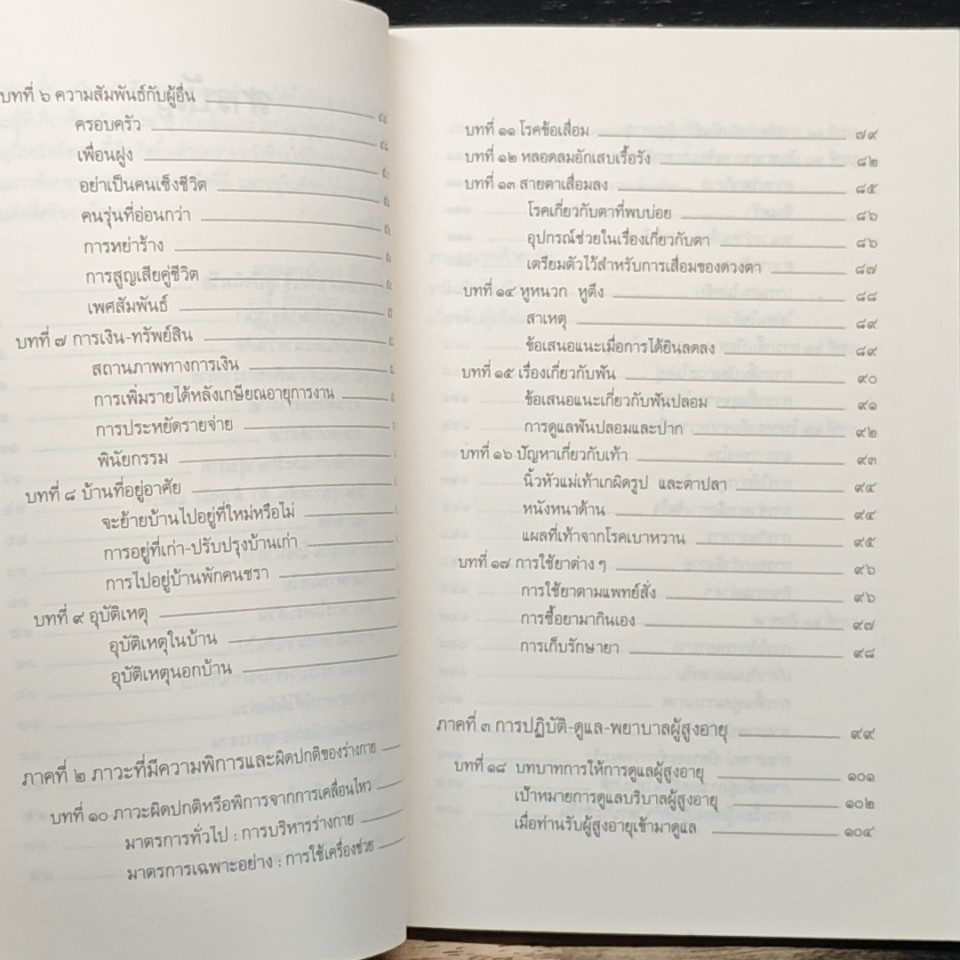 บทที่ ๖ ความสัมพันธ์กับผู้อื่น
ครอบครัว
เพื่อนฝูง
อย่าเป็นคนเซ็งชีวิต
คนรุ่นที่อ่อนกว่า
การหย่าร้าง
การสูญเสียคู่ชีวิต
เพศสัมพันธ์
บทที่ ๗ การเงิน-ทรัพย์สิน
สถานภาพทางการเงิน
การเพิ่มรายได้หลังเกษียณอายุการงาน
การประหยัดรายจ่าย
พินัยกรรม
บทที่ ๘ บ้านที่อยู่อาศัย
จะย้ายบ้านไปอยู่ที่ใหม่หรือไม่
การอยู่ที่เก่า-ปรับปรุงบ้านเก่า
การไปอยู่บ้านพักคนชรา
บทที่ ๙ อุบัติเหตุ
อุบัติเหตุในบ้าน
อุบัติเหตุนอกบ้าน
ภาคที่ ๒ ภาวะที่มีความพิการและผิดปกติของร่างกาย
บทที่ ๑๐ ภาวะผิดปกติหรือพิการจากการเคลื่อนไหว
มาตรการทั่วไป : การบริหารร่างกาย
มาตรการเฉพาะอย่าง : การใช้เครื่องช่วย
บทที่ ๑๑ โรคข้อเสื่อม ๗๙
บทที่ ๑๒ หลอดลมอักเสบเรื้อรัง ๘๒
บทที่ ๑๓ สายตาเสื่อมลง ๘๕
โรคเกี่ยวกับตาที่พบบ่อย ๘๖
อุปกรณ์ช่วยในเรื่องเกี่ยวกับตา ๘๖
เตรียมตัวไว้สำหรับการเสื่อมของดวงตา ๘๗
บทที่ ๑๔ หูหนวก หูตึง ๘๘
สาเหตุ ๘๙
ข้อเสนอแนะเมื่อการได้ยินลดลง ๘๙
บทที่ ๑๕ เรื่องเกี่ยวกับฟัน ๙๐
ข้อเสนอแนะเกี่ยวกับฟันปลอม ๙๑
การดูแลฟันปลอมและปาก ๙๒
บทที่ ๑๖ ปัญหาเกี่ยวกับเท้า ๙๓
นิ้วหัวแม่เท้าเกผิดรูป และตาปลา ๙๔
หนังหนาด้าน ๙๔
แผลที่เท้าจากโรคเบาหวาน ๙๕
บทที่ ๑๗ การใช้ยาต่าง ๆ ๙๖
การใช้ยาตามแพทย์สั่ง ๙๖
การซื้อยามากินเอง ๙๗
การเก็บรักษายา ๙๘
ภาคที่ ๓ การปฏิบัติ-ดูแล-พยาบาลผู้สูงอายุ ๙๙
บทที่ ๑๘ บทบาทการให้การดูแลผู้สูงอายุ ๑๐๑
เป้าหมายการดูแลบริบาลผู้สูงอายุ ๑๐๒
เมื่อท่านรับผู้สูงอายุเข้ามาดูแล ๑๐๔